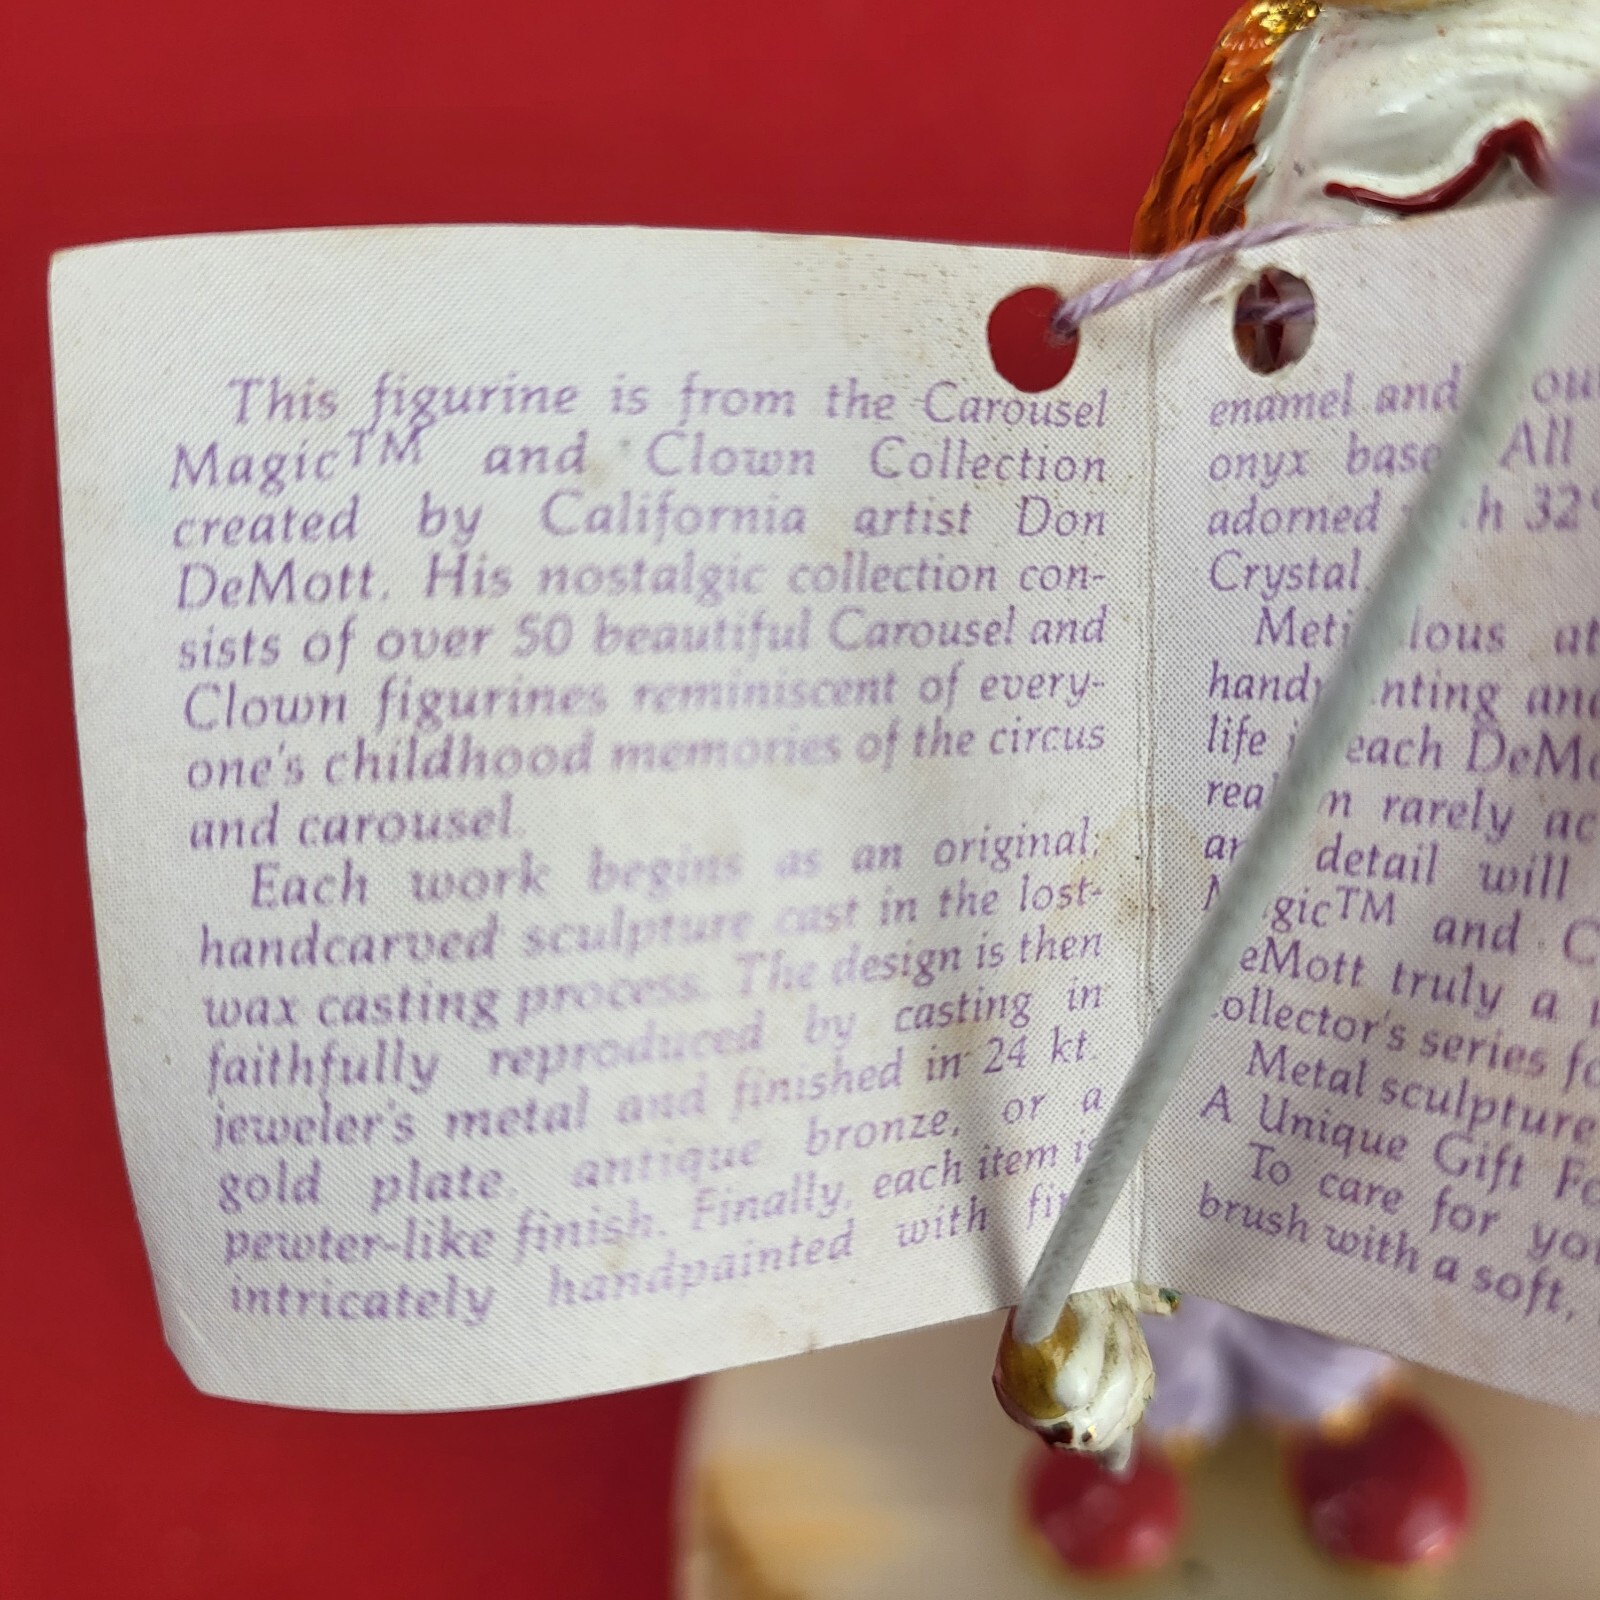 This figurine is from the Carousel
Magic™ and Clown Collection
created by California artist Don
DeMott. His nostalgic collection con-
sists of over 50 beautiful Carousel and
Clown figurines reminiscent of every-
one's childhood memories of the circus
and carousel.
Each work begins as an original,
handcarved sculpture cast in the lost-
wax casting process. The design is then
faithfully reproduced by casting in
jeweler's metal and finished in 24 kt.
gold plate, antique bronze, or a
pewter-like finish. Finally, each item is
intricately handpainted with
enamel and
onyx base All
adorned 32
Crystal.
life each DeMo
rarely
detail will
and
DeMott truly a
collector's series
Metal sculpture
A Unique Gift
To care for
brush with a soft,